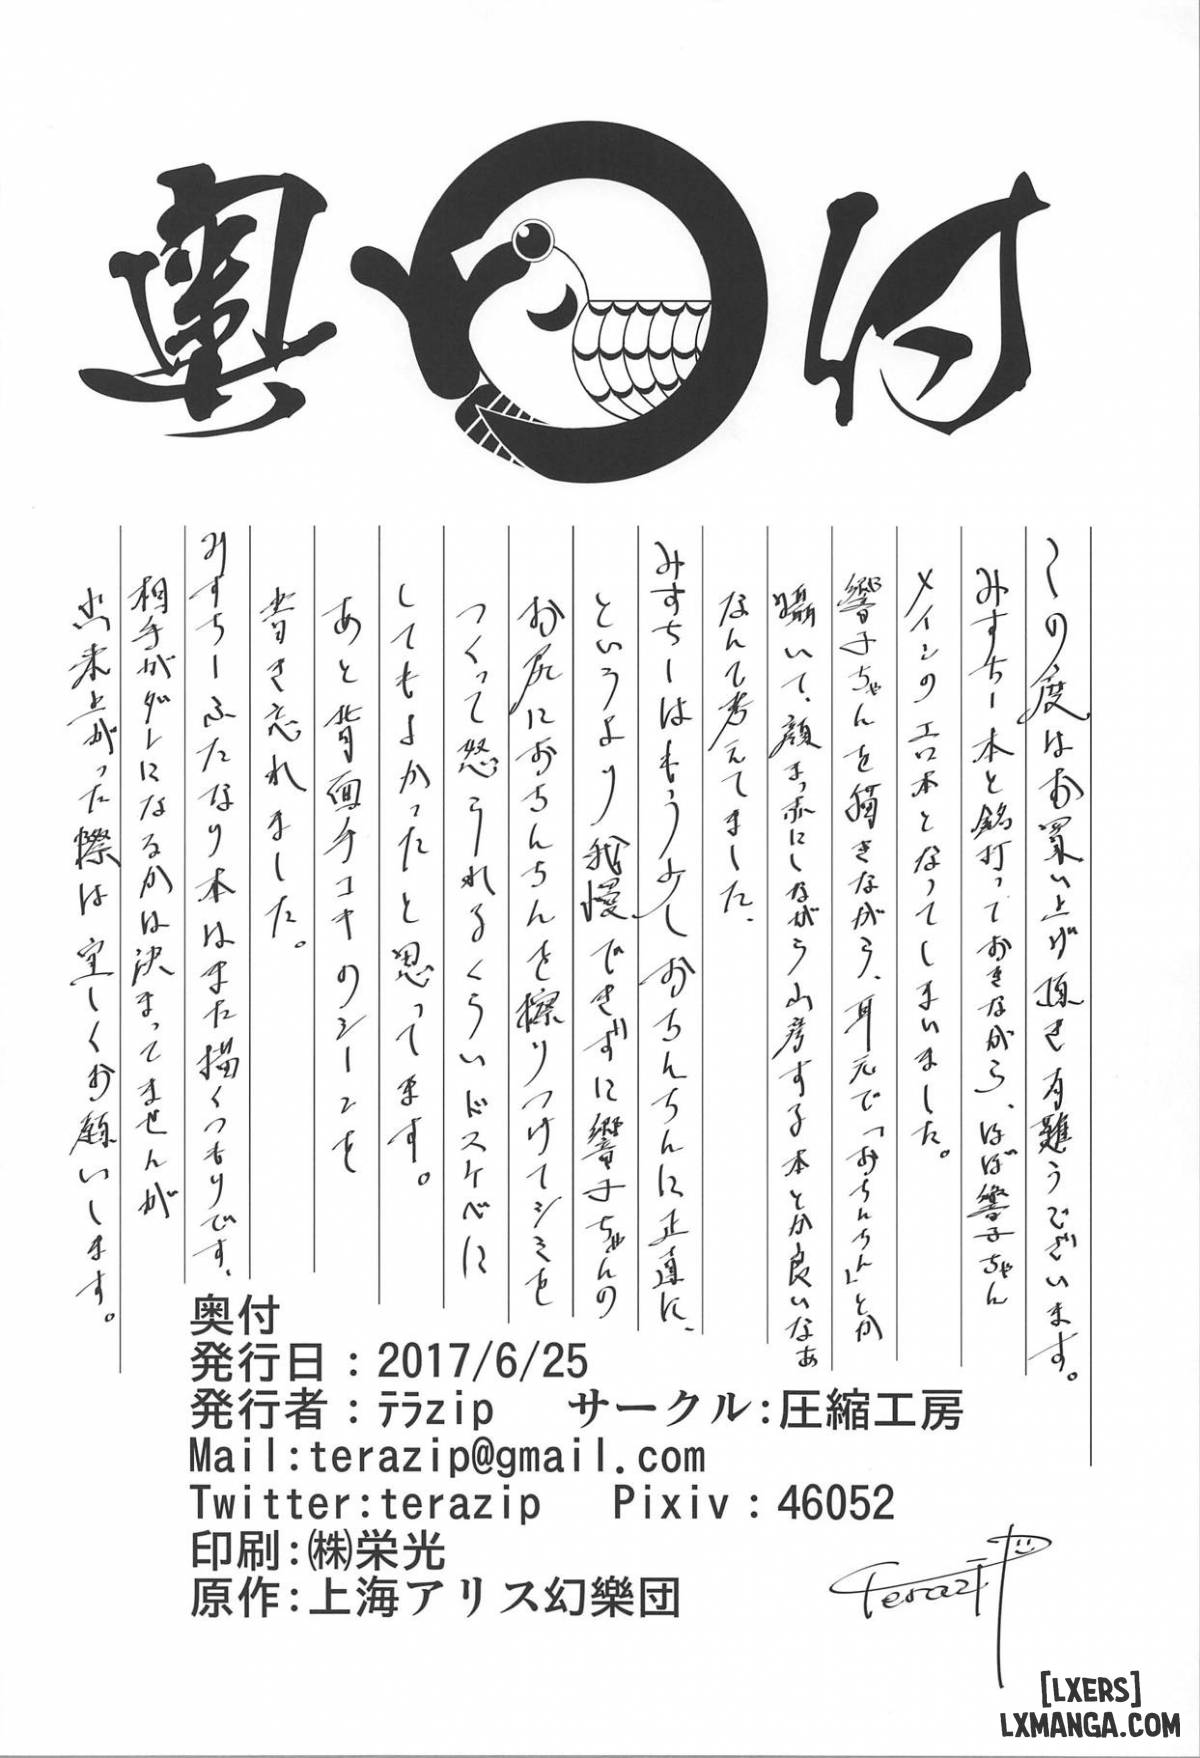 奥付
この度はお買い上げ頂き有難うございます。
みすちー本と銘打っておきながら、ほぼ響子ちゃん
メインのエロ本となってしまいました。
響子ちゃんを描きながら、耳元で「おちんちん」とか
囁いて、顔まっ赤にしながら山彦する本とか良いなぁ
なんて考えてました、
みすちーはもう少しおちんちんに正直に、
というより我慢できずに響子ちゃんの
お尻におちんちんを擦りつけてシミを
つくって怒られるくらいドスケベに
してもよかったと思ってます。
あと背面手コキのシーンを
書き忘れました。
みすちーふたなり本はまた描くつもりです、
相手がダレになるかは決まってませんが
出来上がった際は宜しくお願いします。
奥付
発行日：2017/6/25
発行者：ﾃﾗzip サークル:圧縮工房
Mail:terazip@gmail.com
Twitter:terazip Pixiv：46052
印刷:㈱栄光
原作:上海アリス幻樂団
Terazip
[LXERS]
LXMANGA.COM